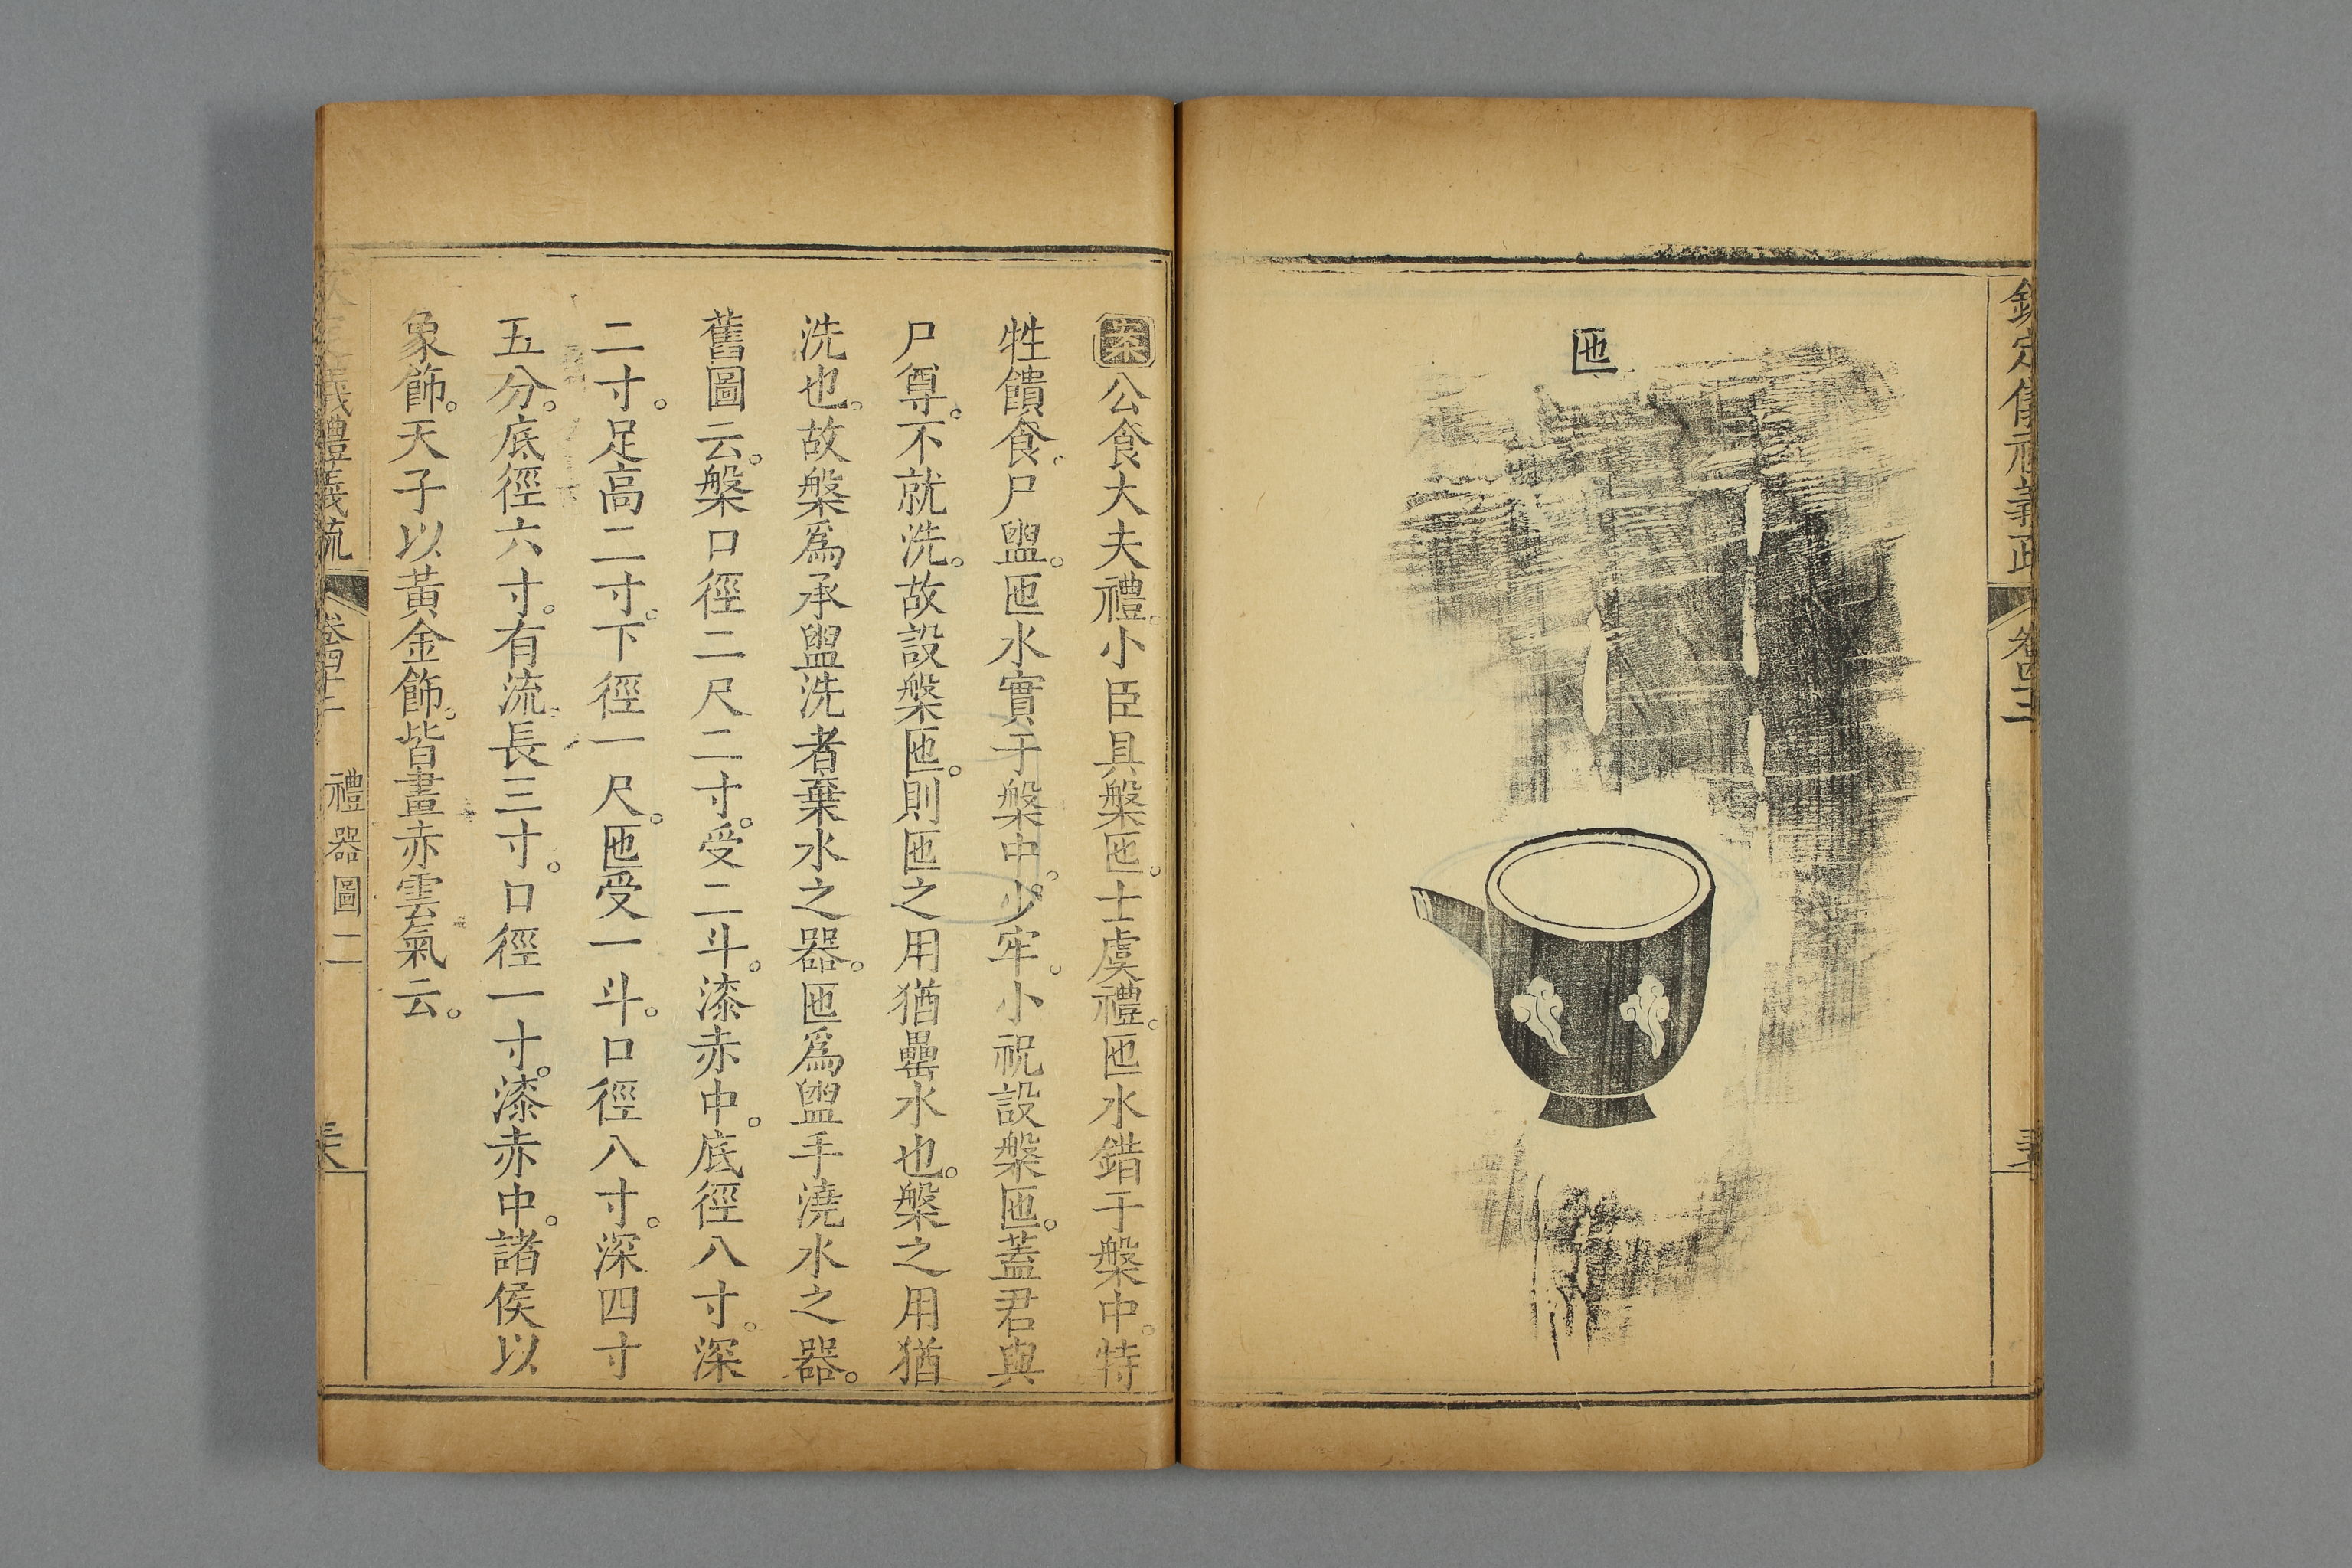 匜
案公食大夫禮。小臣具槃匜。士虞禮。匜水錯于槃中。特
牲饋食。尸盥。匜水實于槃中。少牢。小祝設槃匜。蓋君與
尸尊。不就洗。故設槃匜。則匜之用猶罍水也。槃之用猶
洗也。故槃爲承盥洗者棄水之器。匜爲盥手澆水之器。
舊圖云。槃口徑二尺二寸。受二斗。漆赤中。底徑八寸。深
二寸。足高二寸。下徑一尺。匜受一斗。口徑八寸。深四寸
五分。底徑六寸。有流。長三寸。口徑一寸。漆赤中。諸侯以
象飾。天子以黃金飾。皆畫赤雲氣云。
義禮義疏 禮器圖二